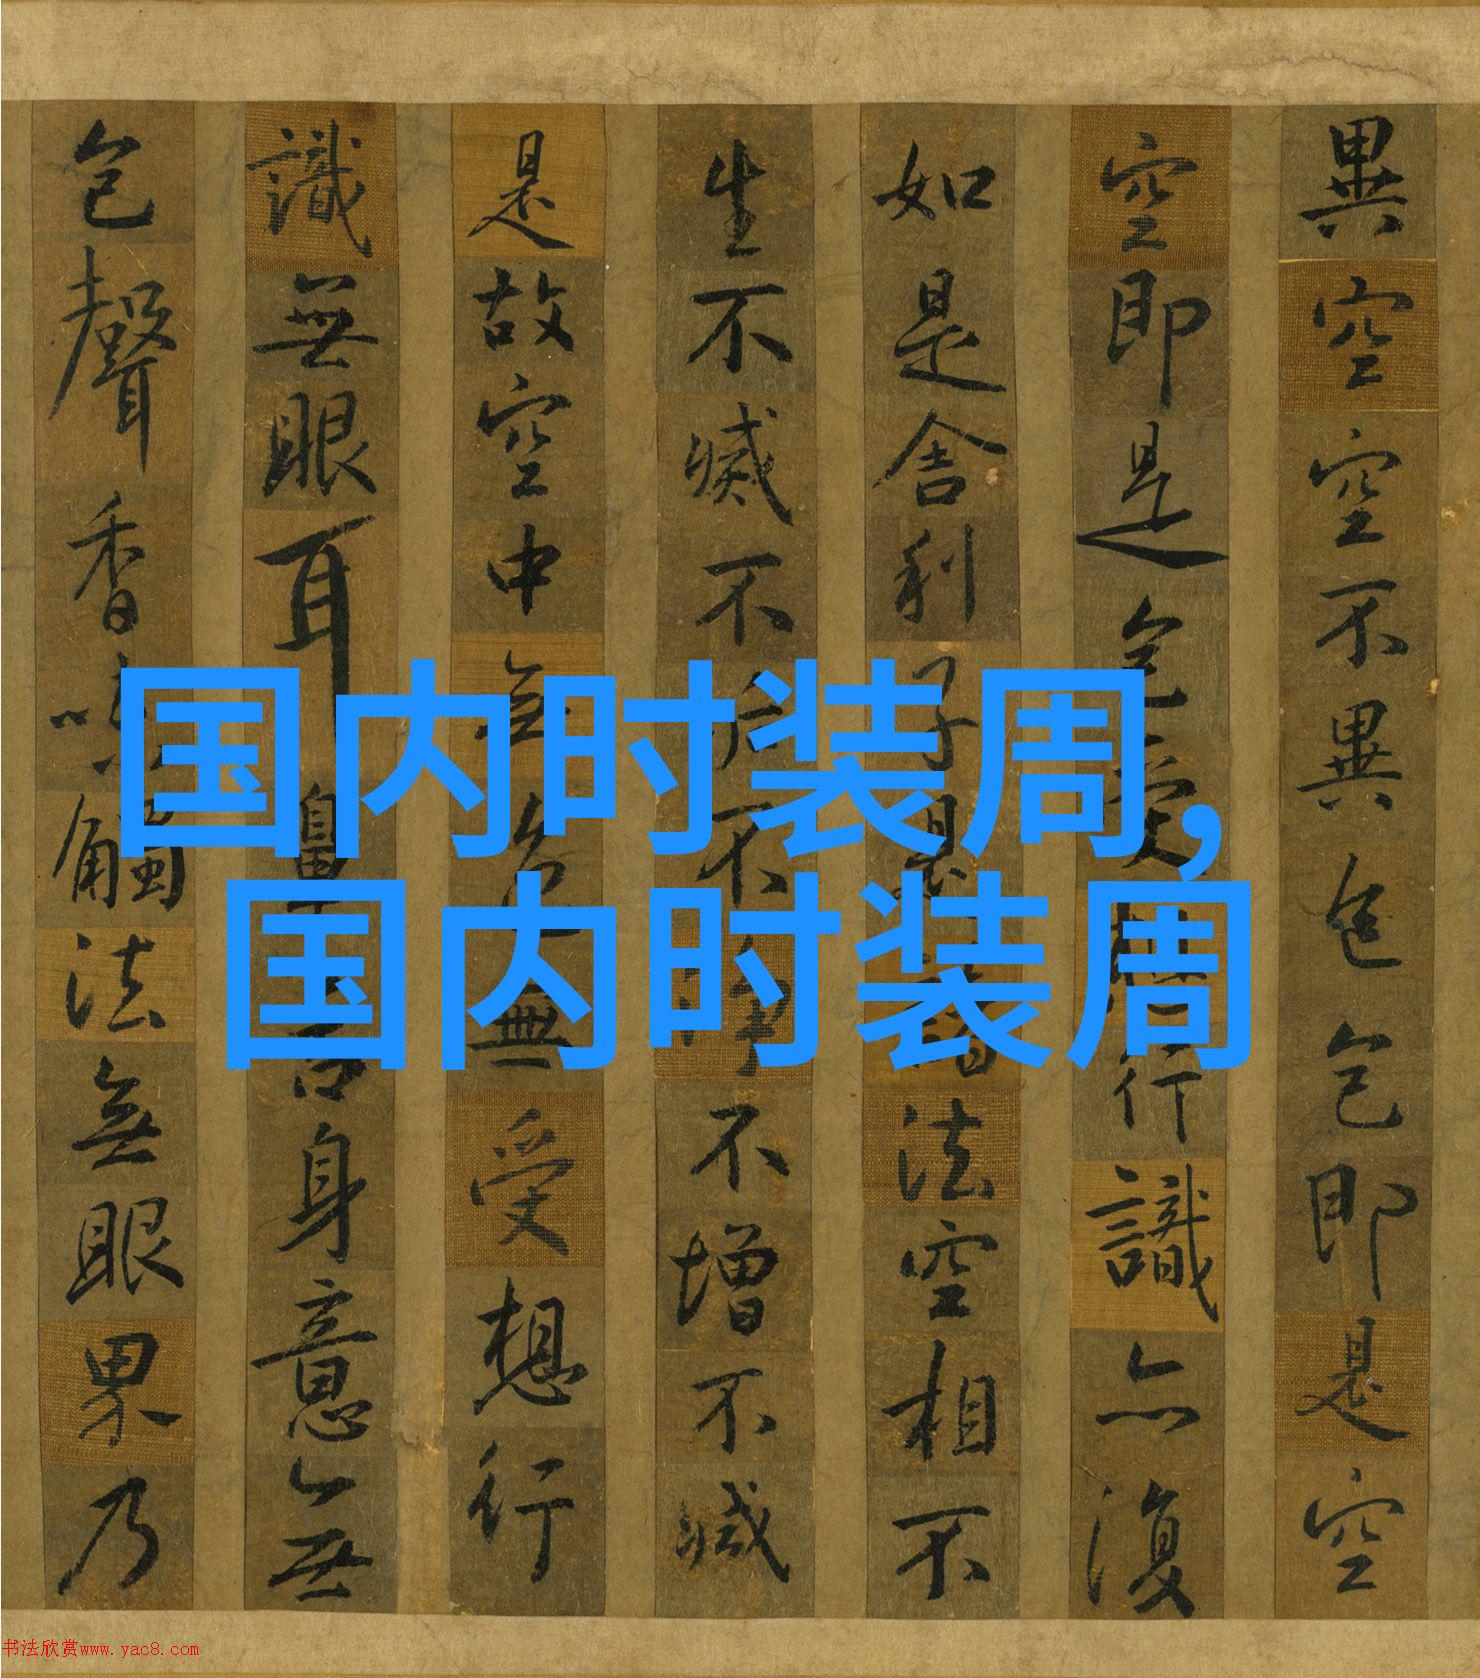 異空空不異色色即是空
空即是色受行識亦復
如是舍利子是法空相不
生不滅不垢不淨不增不減
是故空中無色無受想行
識無眼耳鼻舌身意無
色聲香味觸法無眼界乃
国内时装周,
国内时装周
书法欣赏www.yac8.com